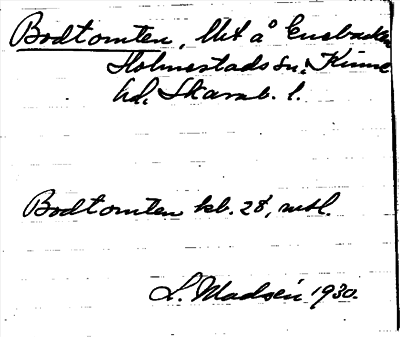 Bodtomten, Utt å Enebacken
Holmestads sn. Kinne
hd. Skarab. l.
Bodtomten kb. 28, mtl.
L. Madsén 1930.